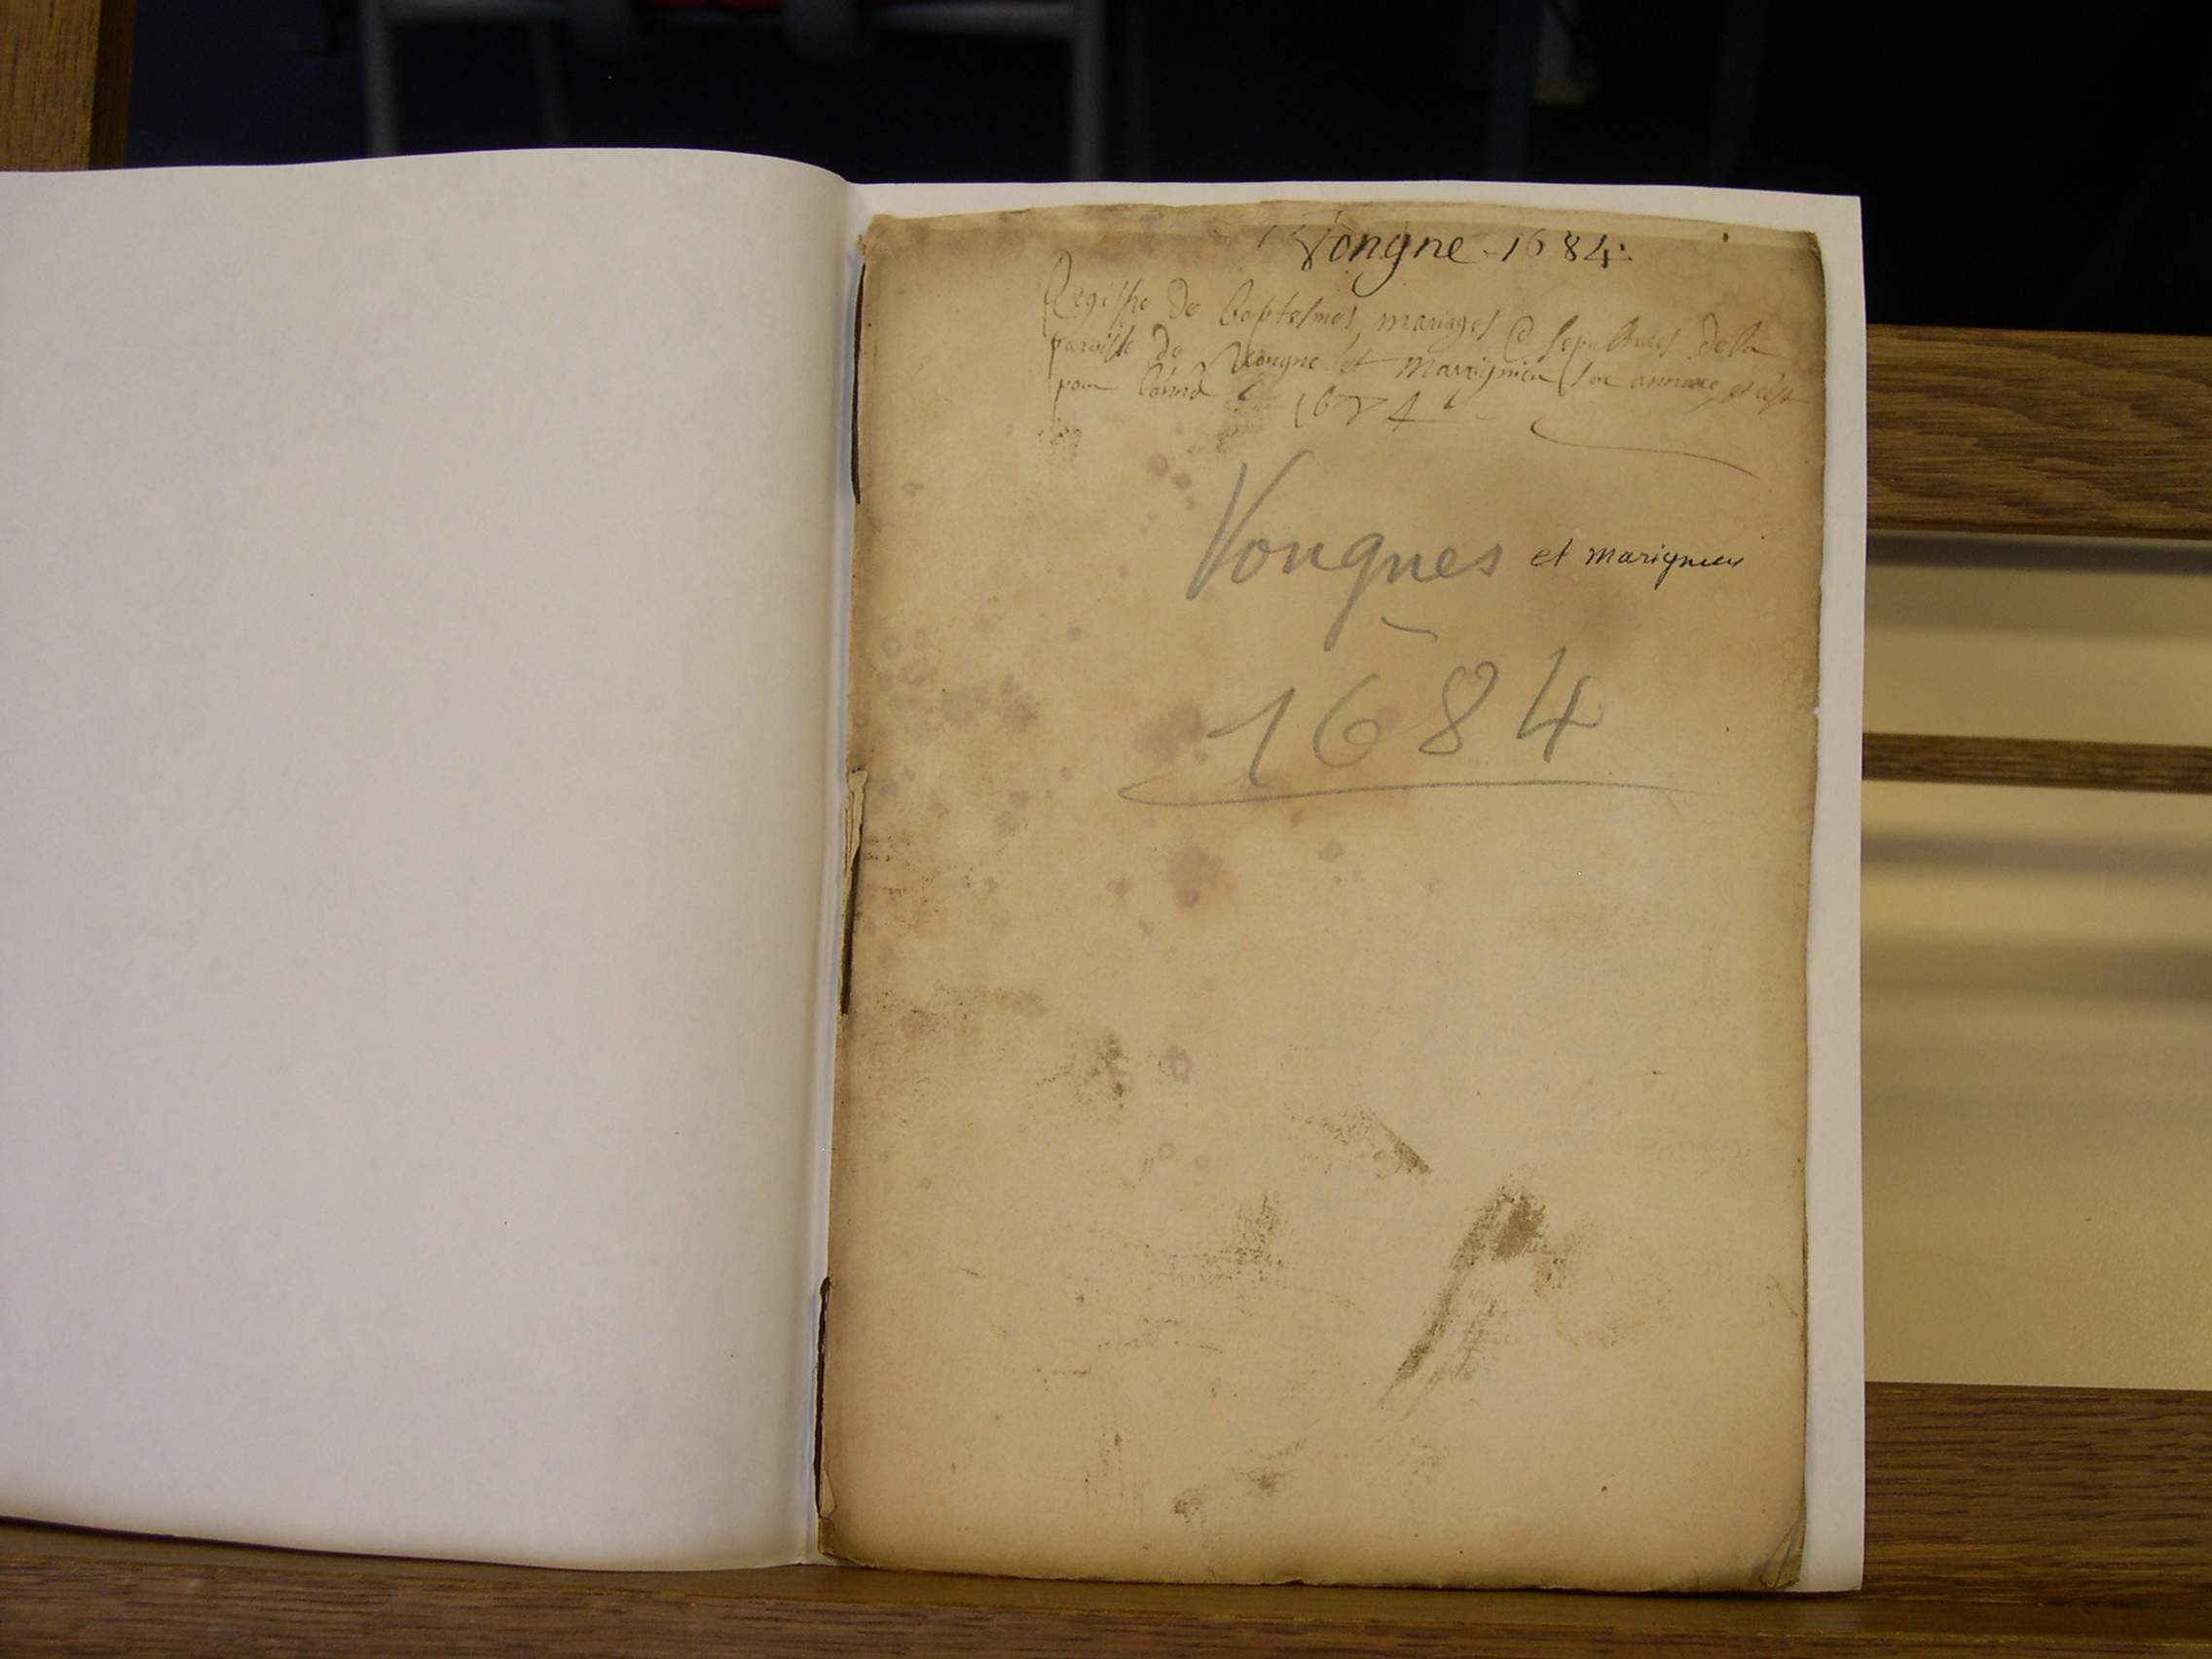 Vongne - 1684.
Registre de baptesmes, mariages & sepultures de la
paroisse de Vongne et Marignieu son annexe, et c'est
pour l'année 1684
Vongnes et marignieu
1684